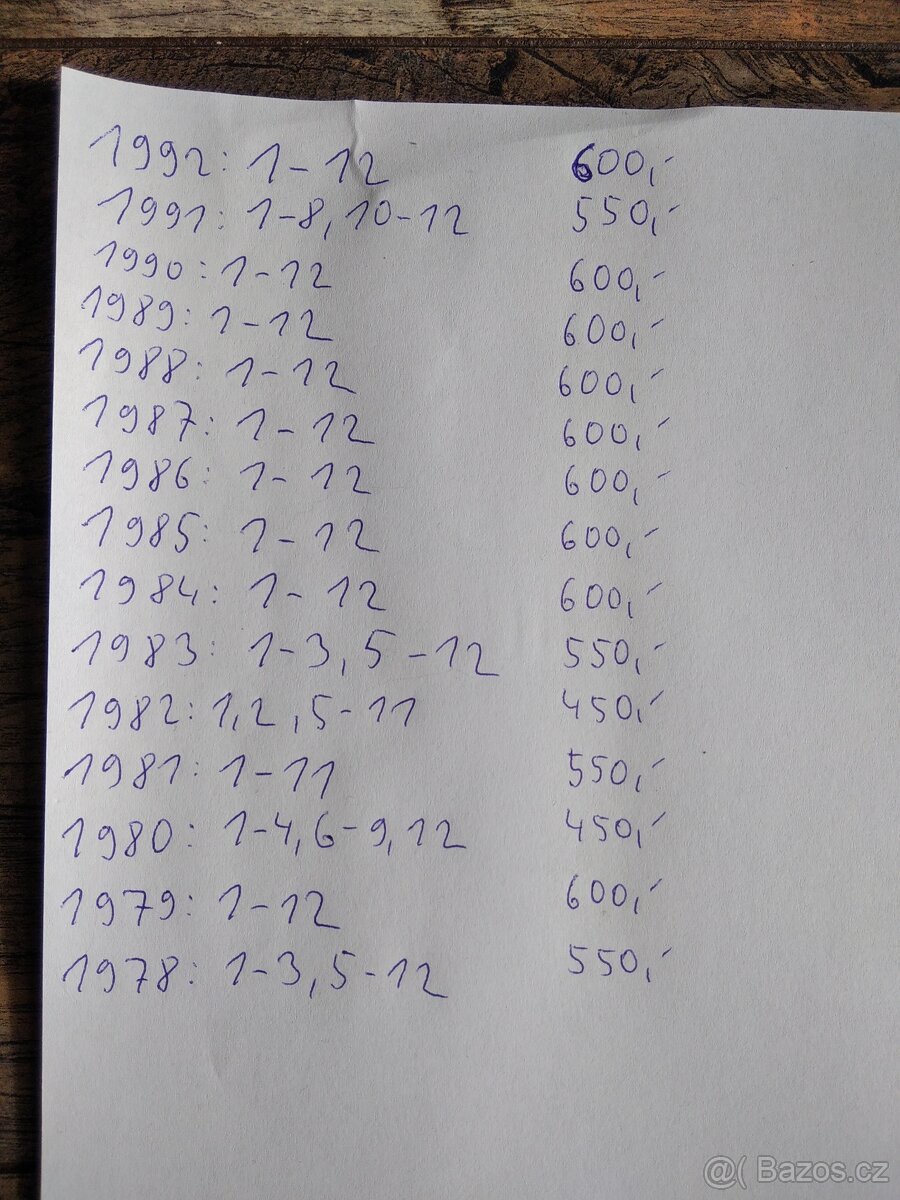 1992: 1-12 600,-
1991: 1-8, 10-12 550,-
1990: 1-12 600,-
1989: 1-12 600,-
1988: 1-12 600,-
1987: 1-12 600,-
1986: 1-12 600,-
1985: 1-12 600,-
1984: 1-12 600,-
1983: 1-3, 5-12 550,-
1982: 1,2, 5-11 450,-
1981: 1-11 550,-
1980: 1-4, 6-9, 12 450,-
1979: 1-12 600,-
1978: 1-3, 5-12 550,-
@( Bazos.cz